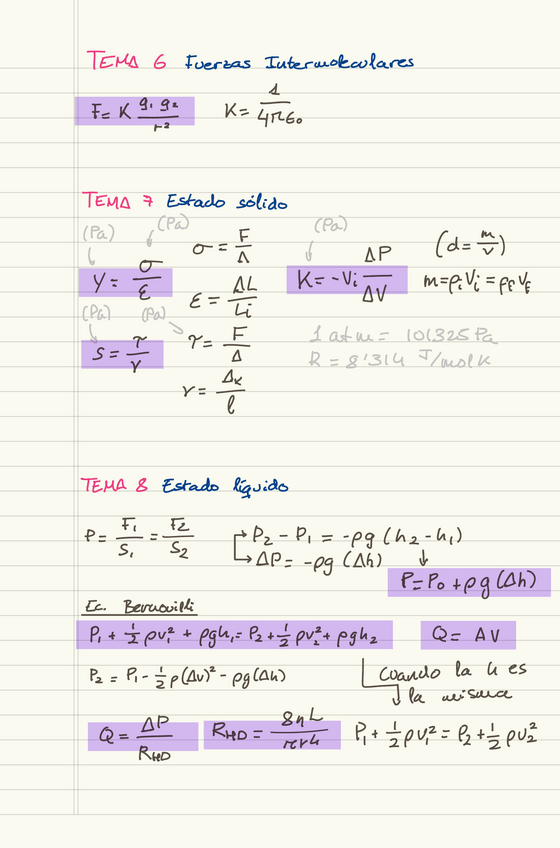 TEMA 6 Fuerzas Intermoleculares
F= K q₁ q₂ / r²   K= 1 / 4πε₀
TEMA 7 Estado sólido
(Pa) (Pa) (Pa)
Y= σ / ε   σ = F / A   K= -Vi ΔP / ΔV   (d= m / v)
ε = ΔL / Li   m=ρi Vi = ρf Vf
(Pa) (Pa)
S = τ / γ   τ= F / A   1 atm = 101325 Pa
R = 8'314 J/mol K
γ = Δx / l
TEMA 8 Estado líquido
P= F₁ / S₁ = F₂ / S₂   P₂ - P₁ = -ρg (h₂ - h₁)
ΔP= -ρg (Δh)
P= P₀ + ρg (Δh)
Ec. Bernouilli
P₁ + ½ ρv₁² + ρgh₁= P₂ + ½ ρv₂² + ρgh₂   Q= AV
P₂ = P₁ - ½ ρ(Δv)² - ρg(Δh)   Cuando la h es
la misma
Q= ΔP / RHD   RHD = 8ηL / πr⁴   P₁ + ½ ρv₁² = P₂ + ½ ρv₂²